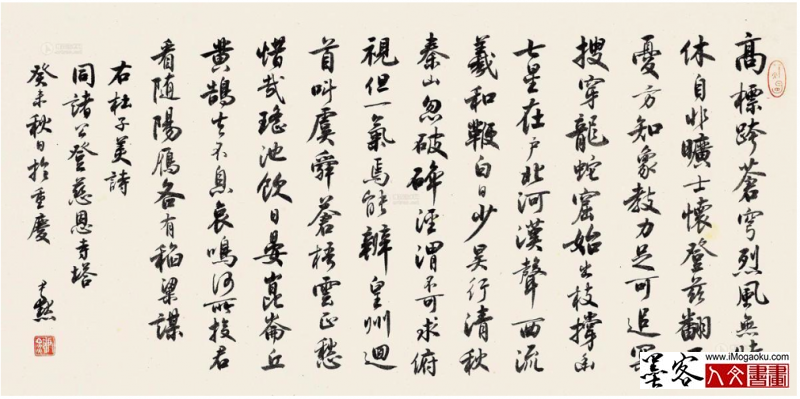 高標跨蒼穹烈風無時
休自非曠士懷登茲翻
憂方知象教力足可追冥
搜穿龍蛇窟始出枝撐幽
七星在戶北河漢聲西流
羲和鞭白日少昊行清秋
秦山忽破碎涇渭不可求俯
視但一氣焉能辨皇州迴
首叫虞舜蒼梧雲正愁
惜哉瑤池飲日晏崑崙丘
黃鵠去不息哀鳴何所投君
看隨陽鴈各有稻粱謀
右杜子美詩
同諸公登慈恩寺塔
癸未秋日於重慶
尹默
墨客
www.iMogaoku.com
人文書畫